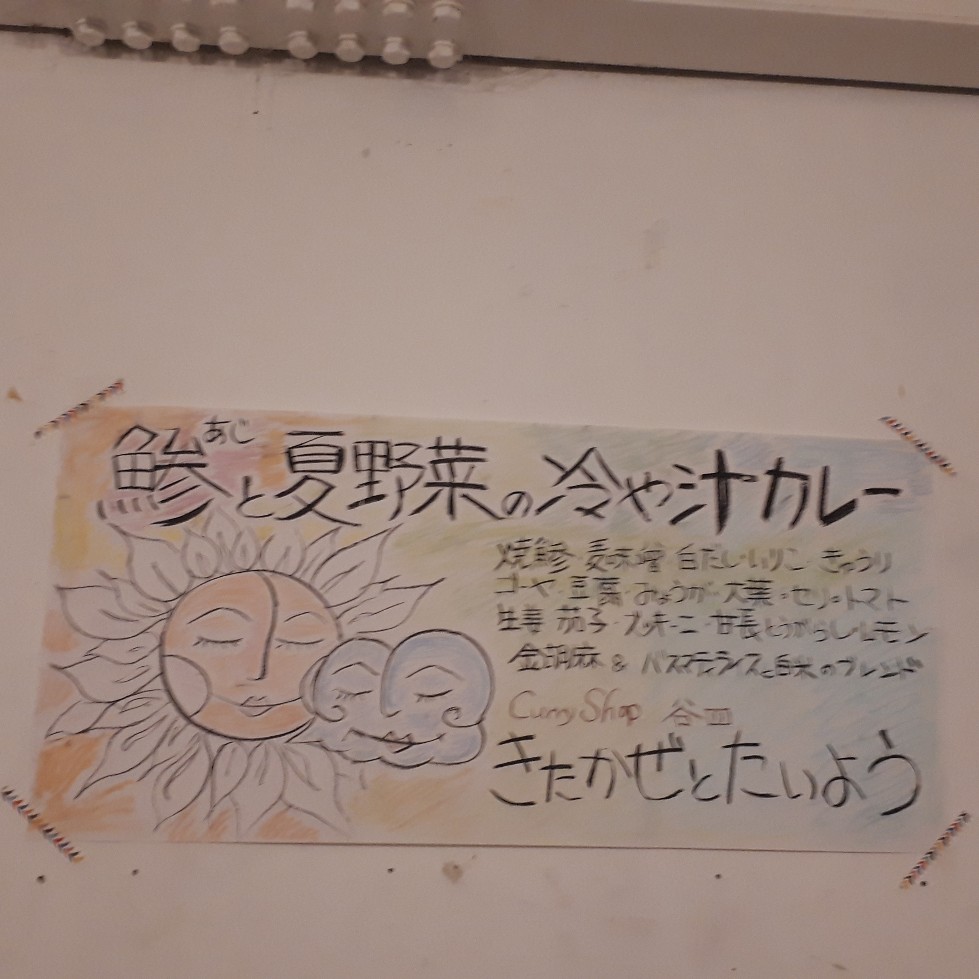 鯵あじと夏野菜の冷や汁カレー
焼鯵・麦味噌・白だし・いりこ・きゅうり
ゴーヤ・豆腐・みょうが・大葉・セリ・トマト
生姜・茄子・ズッキーニ・甘長とうがらし・レモン
金胡麻 & バスマティライスと白米のブレンド
Curry Shop 谷皿
きたかぜとたいよう